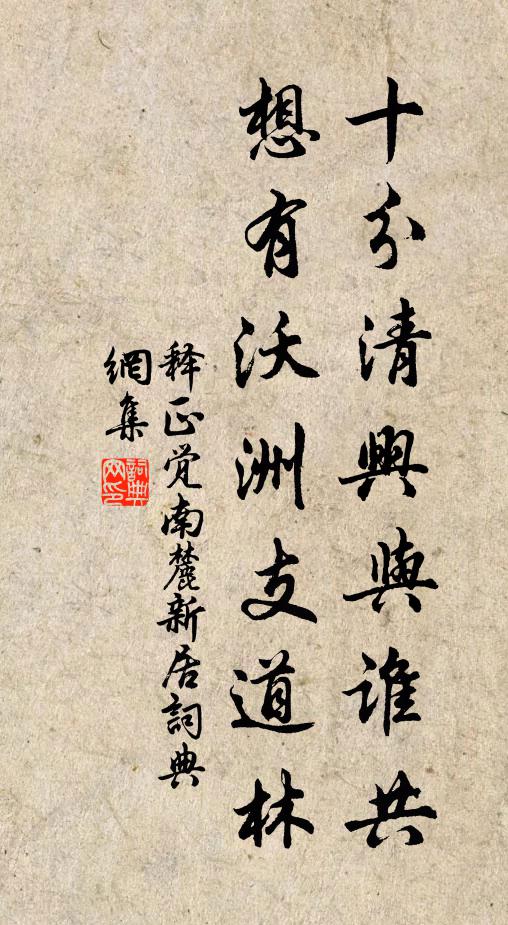 十分清興與誰共
想有沃洲支道林
释正觉南麓新居詞典
網集
詞典
网印